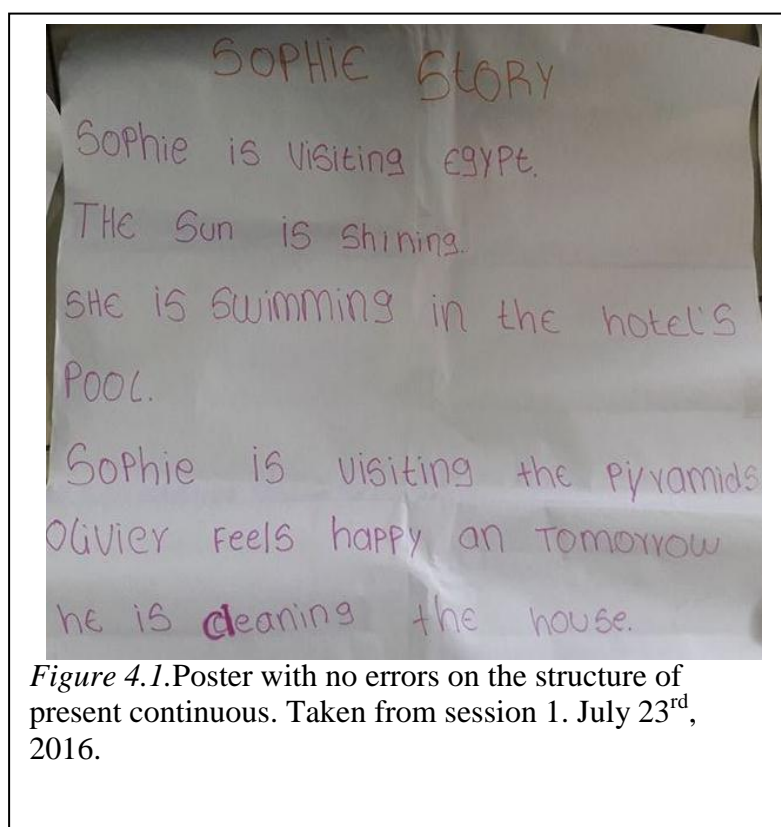 SOPHIE StORY
Sophie is visiting Egypt.
THE Sun is shining.
SHE is swimming in the hotel's
Pool.
Sophie is visiting the Piyramids
Olivier Feels happy an Tomorrow
he is cleaning the house.
Figure 4.1.Poster with no errors on the structure of
present continuous. Taken from session 1. July 23rd,
2016.